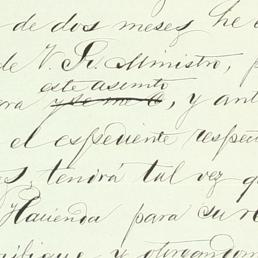 de dos meses he
de V. S. Ministro,
este asunto
ra y se me, y ant
el espediente respec
s, tendrá tal vez q
Hacienda para su r
y otorgandom